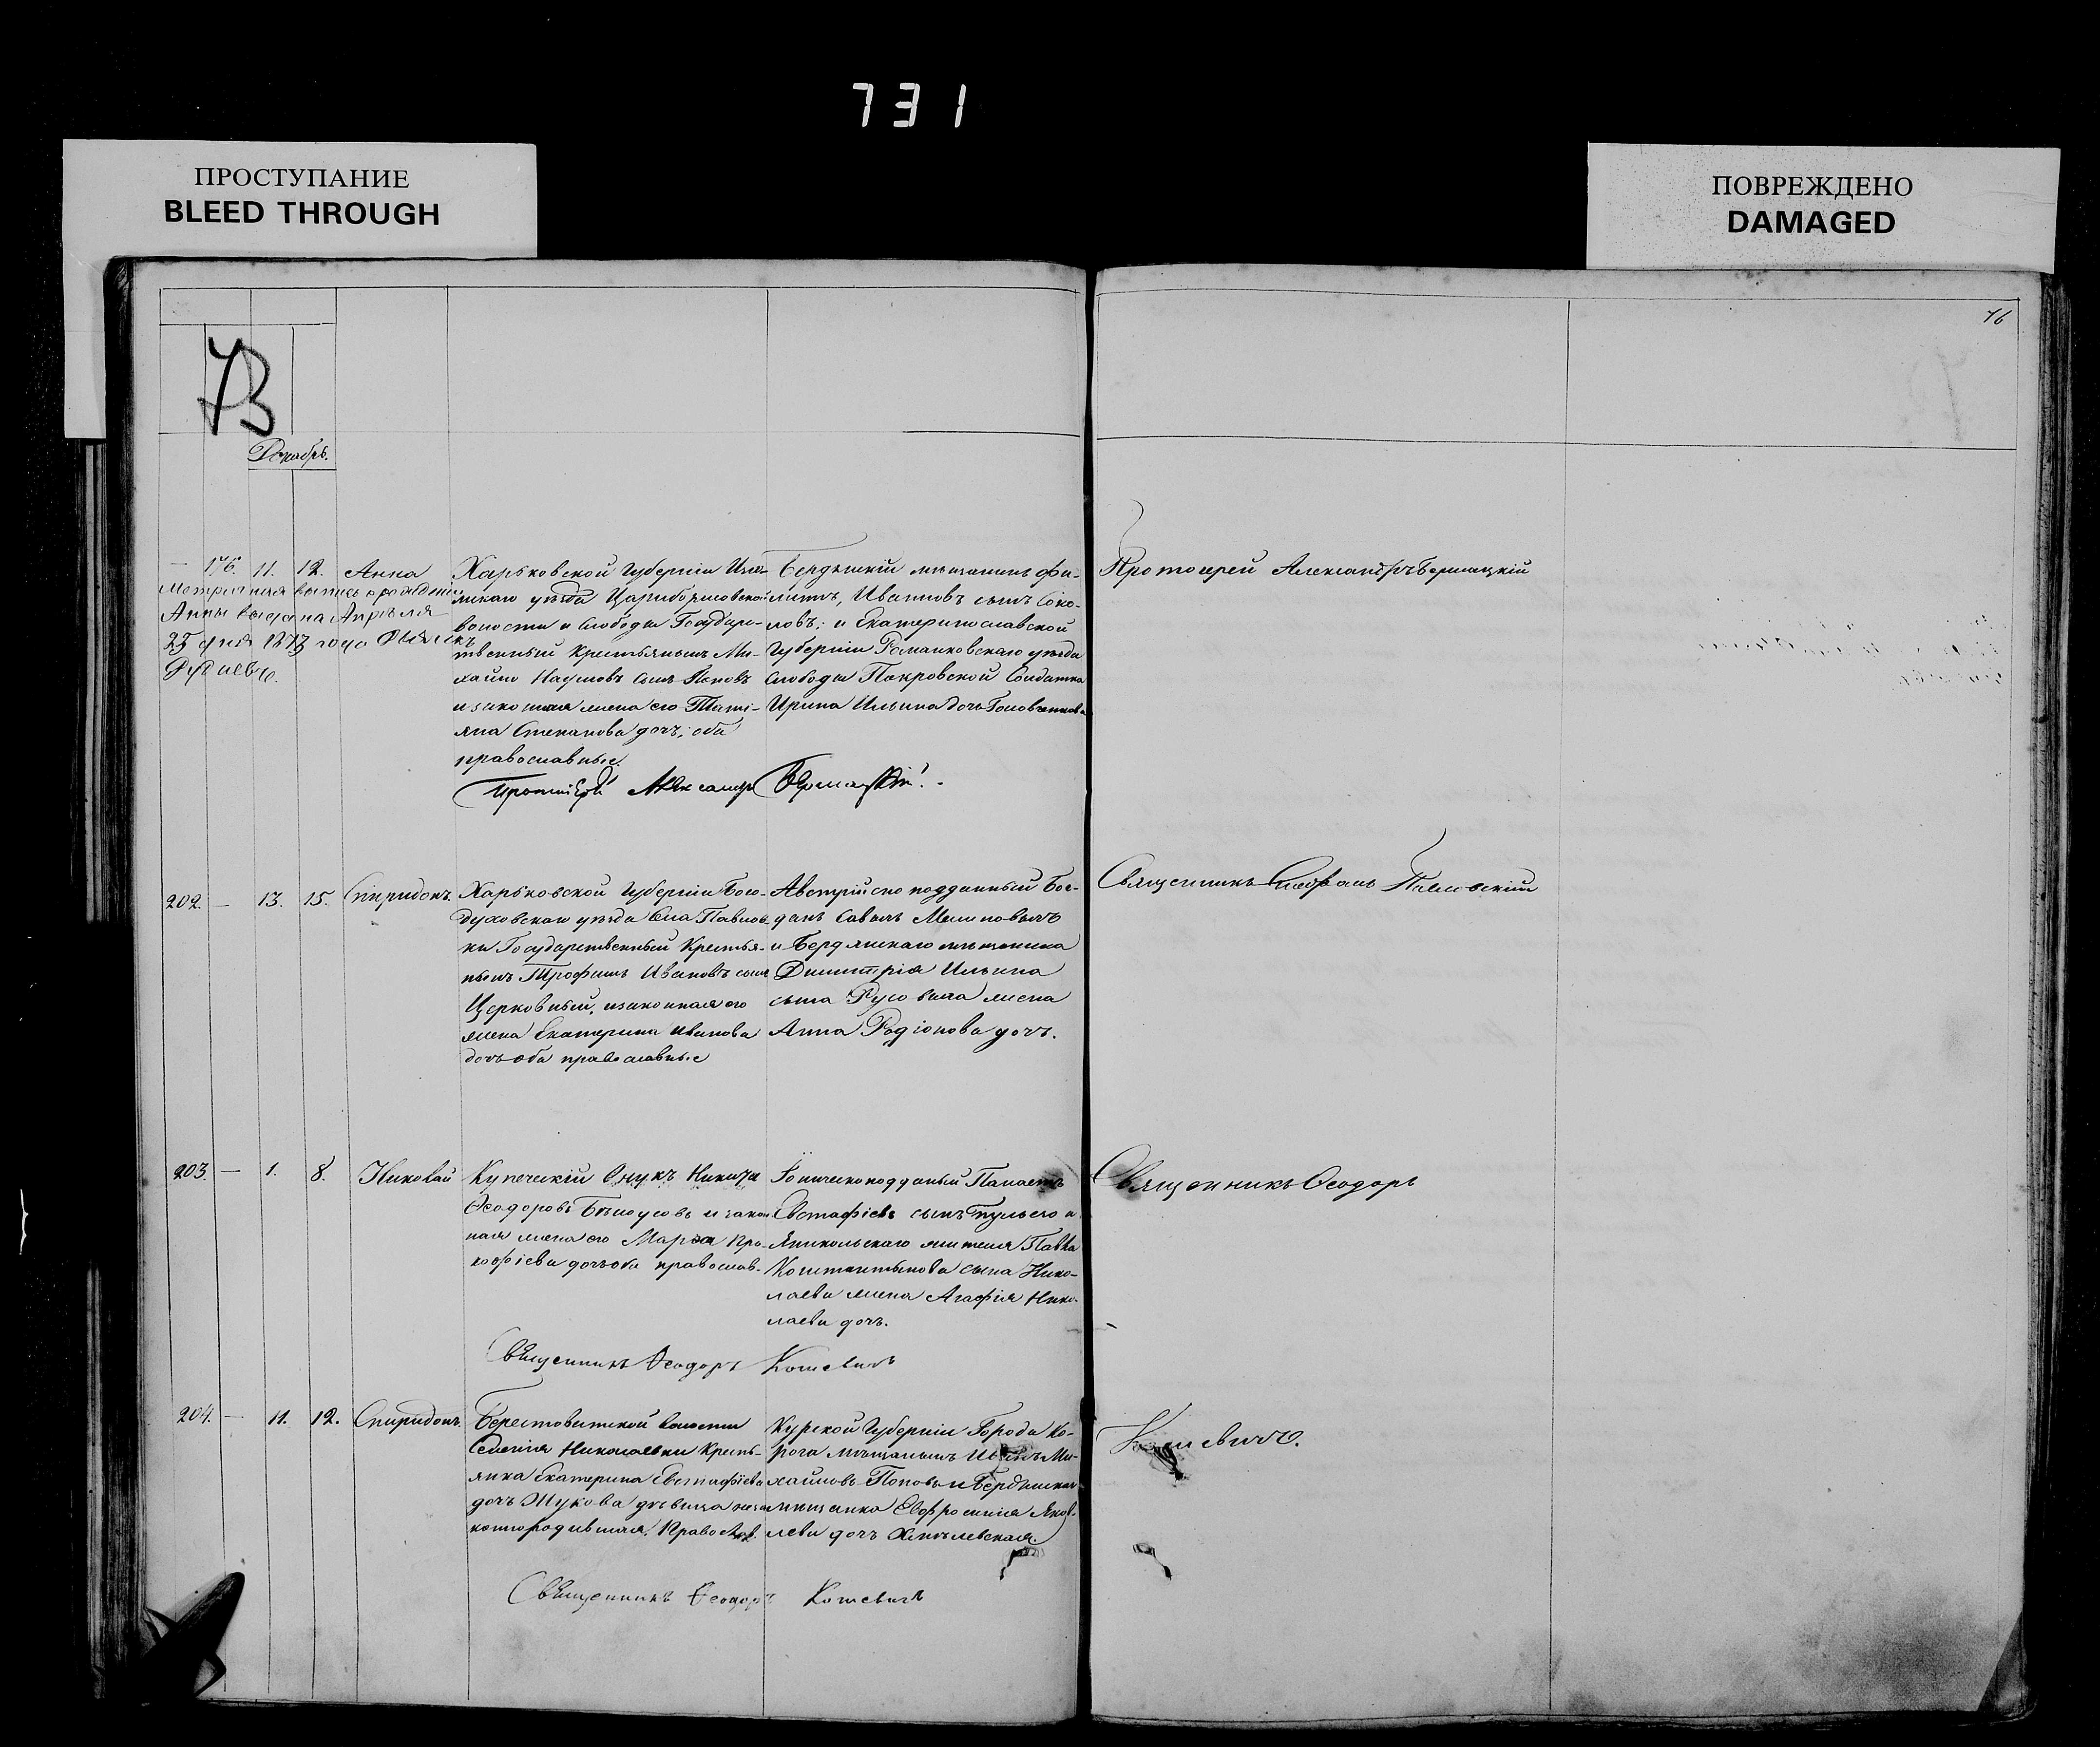 731
ПРОСТУПАНИЕ
BLEED THROUGH
ПОВРЕЖДЕНО
DAMAGED
76
73
Декабрь.
— 176. 11. 12. Анна
Метрическая выпись о рождении
Анны выдана Апреля
25 дня 1873 года
Харьковской Губерніи Изю-
мскаго уѣзда Цариборисовской
волости и слободы Государс-
твенный Крестьянинъ Ми-
хаилъ Наумовъ сынъ
и законная жена его Тати-
яна Степанова дочь; оба
православные.
Бердянскій мѣщанинъ Фи-
липпъ, Ивановъ сынъ Соко-
ловъ; и Екатеринославской
Губерніи Романковскаго уѣзда
слободы Покровской Солдатка
Ирина Ильина дочь Головченкова
Протоіерей Александръ
Протоіерей Александръ
202. — 13. 15. Спиридонъ.
Харьковской Губерніи Бого-
духовскаго уѣзда села Павлов-
ки Государственный Крестья-
нинъ Трофимъ Ивановъ сынъ
Церковный, и законная его
жена Екатерина Иванова
дочь оба православные
Австрійско подданный Бог-
данъ Савинъ
и Бердянскаго мѣщанина
Димитрія Ильина
сына жена
Анна Родіонова дочь.
Священникъ
203. — 1. 8. Николай
Купеческій внукъ Никита
Ѳеодоровъ Бѣлоусовъ и закон
ная жена его Марѳа Про-
кофіева дочь оба православ.
подданный
Евстафіевъ сынъ
жителя Павла
Константинова сына Нико-
лаева жена Агафія Нико-
лаева дочь.
Священникъ Ѳеодоръ Кошевичъ
Священникъ Ѳеодоръ
204. — 11. 12. Спиридонъ.
Берестоватской волости
селенія Николаевки Кресть-
янка Екатерина Евстафіева
дочь Жукова дѣвица неза
коннородившая. Правосл.
Курской Губерніи Города Ко-
роча мѣщанинъ Иванъ Ми-
хайловъ Поповъ и Бердянская
мѣщанка Евфросинія Яков-
лева дочь Хмѣлевская.
Священникъ Ѳеодоръ Кошевичъ
Кошевичъ.